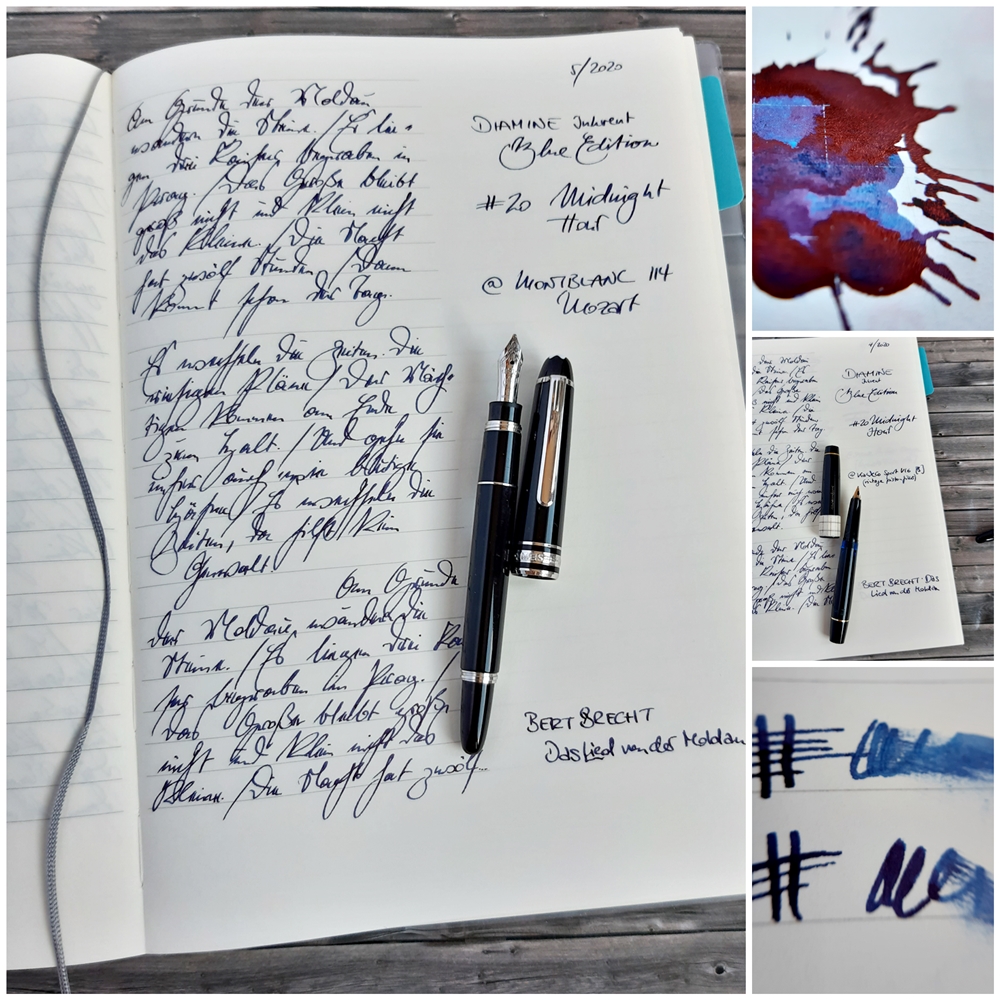 Am Grunde der Moldau
wandern die Steine. / Es lie-
gen drei Kaiser begraben in
Prag. / Das Große bleibt
groß nicht und klein nicht
das Kleine. / Die Nacht
hat zwölf Stunden / Dann
kommt schon der Tag.
Es wechseln die Zeiten. Die
riesigen Pläne / Der Mäch-
tigen kommen am Ende
zum Halt. / Und gehn sie
einher auch wie blutige
/ Es wechseln die
Zeiten, da hilft kein
Gewalt.
Am Grunde
der Moldau, wandern die
Steine. / Es liegen drei Kai
ser begraben in Prag. /
Das Große bleibt große
nicht und klein nicht das
Kleine. / Die Nacht hat zwölf...
5/2020
DIAMINE Inkvent
Blue Edition
#20 Midnight
Hour
@ MONTBLANC 114
Mozart
BERT BRECHT
Das Lied von der Moldau
/2020
DIAMINE
Blue Edition
#20 Midnight
Hour
BERT BRECHT: Das
Lied von der Moldau